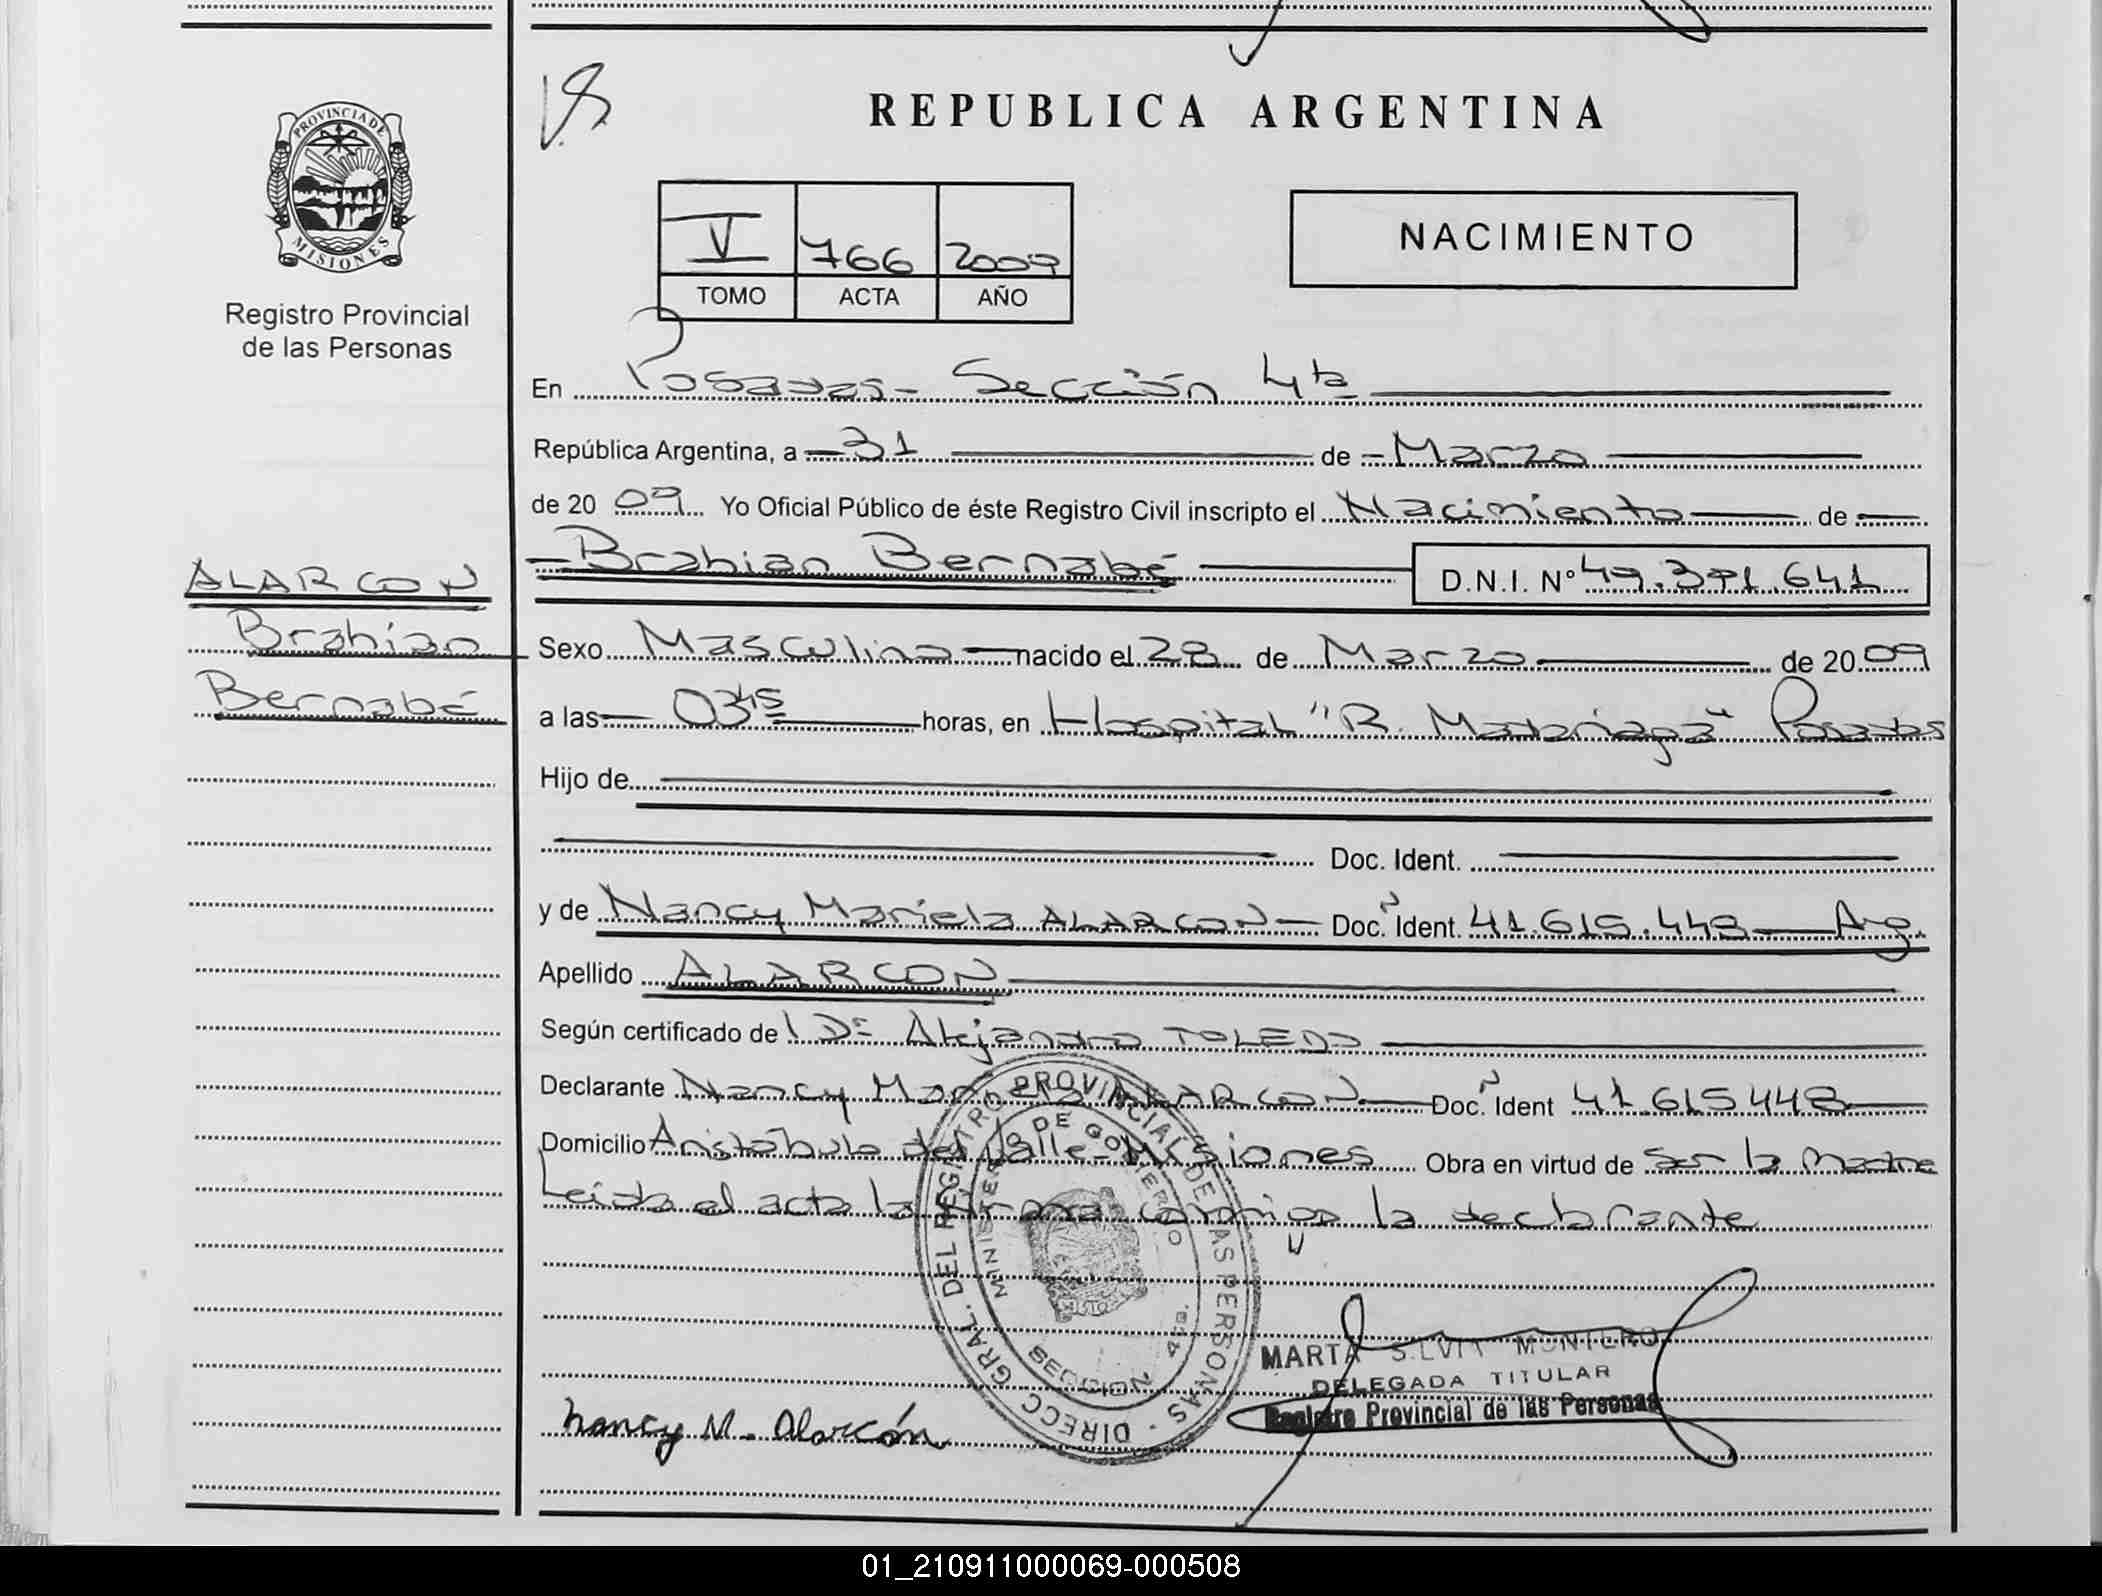 V8
REPUBLICA ARGENTINA
PROVINCIA DE
MISIONES
Registro Provincial
de las Personas
V 766 2009
TOMO ACTA AÑO
NACIMIENTO
En Posadas - Sección 4ta
República Argentina, a 31 de Marzo
de 2009 Yo Oficial Público de éste Registro Civil inscripto el Nacimiento de
Brahian Bernabé D.N.I. Nº 49.391.641
ALARCON
Brahian
Bernabé
Sexo Masculino nacido el 28 de Marzo de 2009
a las 03 hs horas, en Hospital "R. Madariaga" Posadas
Hijo de
Doc. Ident.
y de Nancy Mariela ALARCON Doc. Ident. 41.615.448 Arg.
Apellido ALARCON
Según certificado de Dr Alejandro TOLEDO
Declarante Nancy Mariela ALARCON Doc. Ident 41.615 448
Domicilio Aristóbulo del Valle - Misiones Obra en virtud de Ser la Madre
Leida el acta la firma conmigo la declarante
DIRECC GRAL. DEL REGISTRO PROVINCIAL DE LAS PERSONAS -
MINISTERIO DE GOBIERNO
SECCION 4ta.
MARTA SILVIA MONTERO
DELEGADA TITULAR
Registro Provincial de las Personas
Nancy M. Alarcón
01_210911000069-000508